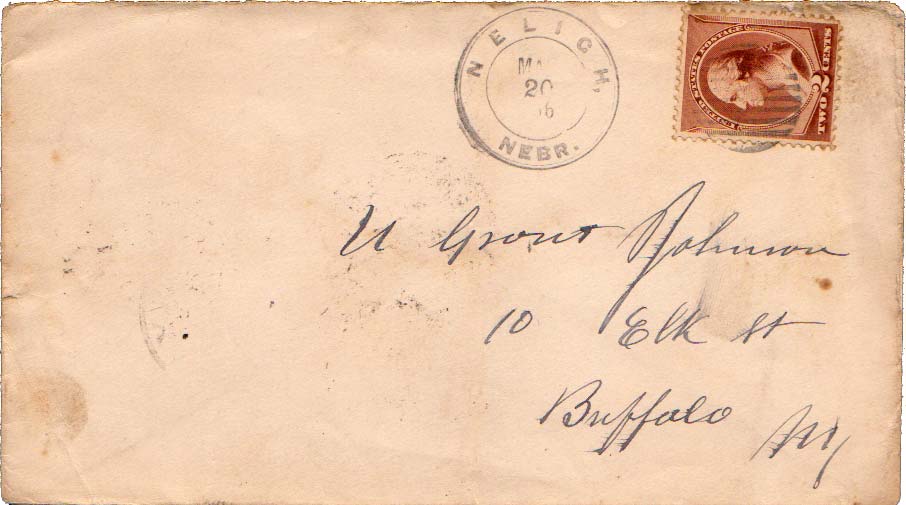 NELIGH,
MA
20
6
NEBR.
UNITED STATES POSTAGE
TWO 2 CENTS
U Grant Johnson
10 Elk St
Buffalo NY